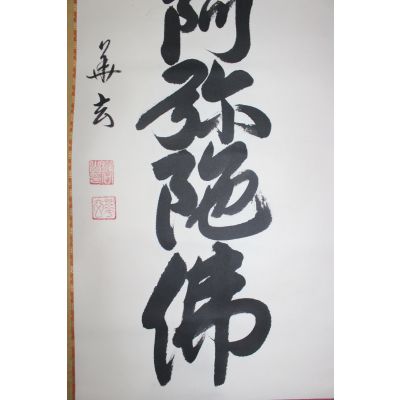 阿弥陀佛
華玄